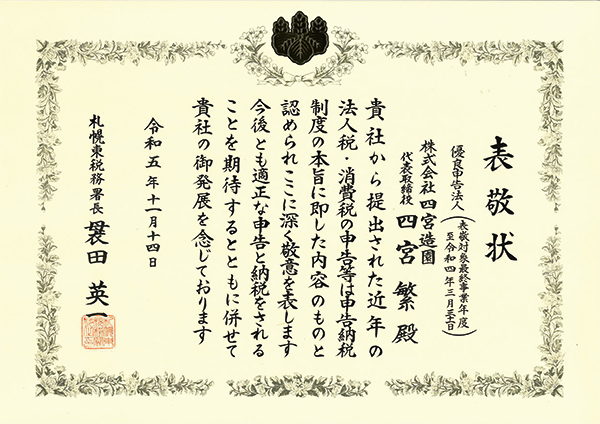 表敬状
優良申告法人
（表敬対象最終事業年度
至令和四年三月三十一日）
株式会社四宮造園
代表取締役 四宮 繁 殿
貴社から提出された近年の
法人税・消費税の申告等は申告納税
制度の本旨に即した内容のものと
認められここに深く敬意を表します
今後とも適正な申告と納税をされる
ことを期待するとともに併せて
貴社の御発展を念じております
令和五年十一月十四日
札幌東税務署長 蓑田 英一